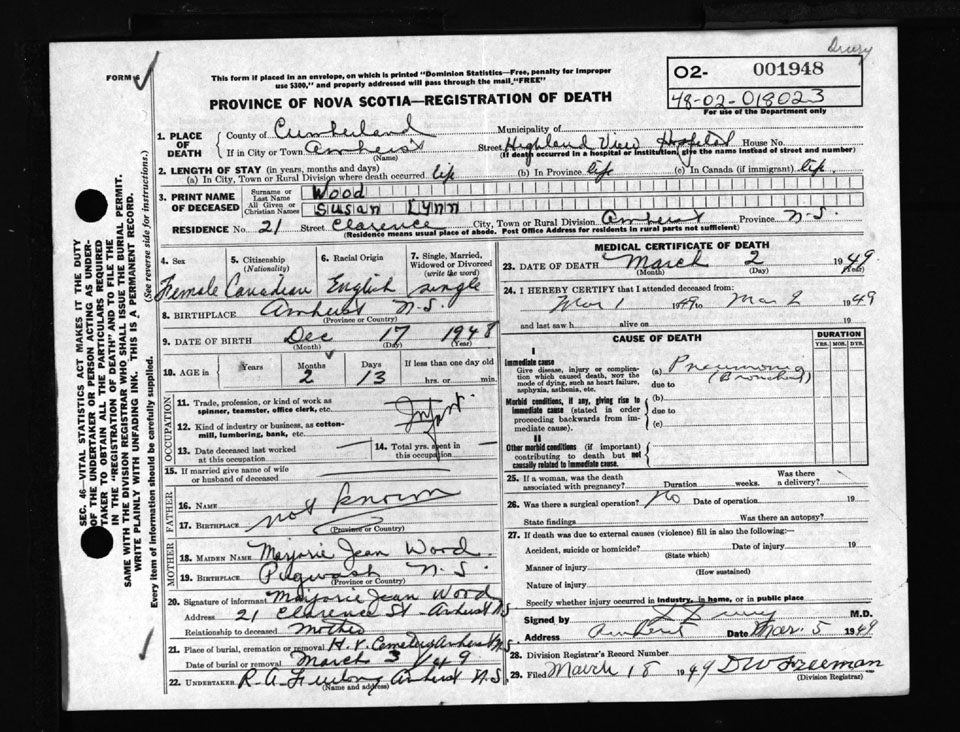 Drury
FORM 6
This form if placed in an envelope, on which is printed "Dominion Statistics—Free, penalty for improper
use $300," and properly addressed will pass through the mail "FREE"
O2- 001948
48-02-018023
For use of the Department only
PROVINCE OF NOVA SCOTIA—REGISTRATION OF DEATH
1. PLACE OF DEATH
County of Cumberland Municipality of
If in City or Town Amherst Street Highland View Hospital House No.
(Name) (If death occurred in a hospital or institution, give the name instead of street and number)
2. LENGTH OF STAY (in years, months and days)
(a) In City, Town or Rural Division where death occurred life (b) In Province life (c) In Canada (if immigrant) life
3. PRINT NAME OF DECEASED
Surname or Last Name Wood
All Given or Christian Names Susan Lynn
RESIDENCE No. 21 Street Clarence City, Town or Rural Division Amherst Province N-S.
(Residence means usual place of abode. Post Office Address for residents in rural parts not sufficient)
4. Sex
5. Citizenship (Nationality)
6. Racial Origin
7. Single, Married, Widowed or Divorced (write the word)
Female Canadian English single
8. BIRTHPLACE Amherst N.S.
(Province or Country)
9. DATE OF BIRTH Dec 17 1948
(Month) (Day) (Year)
10. AGE in Years Months 2 Days 13 If less than one day old hrs. or min.
OCCUPATION
11. Trade, profession, or kind of work as spinner, teamster, office clerk, etc. Infant
12. Kind of industry or business, as cotton-mill, lumbering, bank, etc.
13. Date deceased last worked at this occupation
14. Total yrs. spent in this occupation
15. If married give name of wife or husband of deceased
FATHER
16. NAME not known
17. BIRTHPLACE
(Province or Country)
MOTHER
18. MAIDEN NAME Marjorie Jean Wood.
19. BIRTHPLACE Pugwash N.S.
(Province or Country)
20. Signature of informant Marjorie Jean Wood
Address 21 Clarence St - Amherst N.S
Relationship to deceased Mother
21. Place of burial, cremation or removal H.V. Cemetery Amherst N.S.
Date of burial or removal March 3 1949
22. UNDERTAKER R.A. Furlong Amherst N.S.
(Name and address)
MEDICAL CERTIFICATE OF DEATH
23. DATE OF DEATH March 2 1949
(Month) (Day) (Year)
24. I HEREBY CERTIFY that I attended deceased from:
Mar 1 1949 to Mar 2 1949
and last saw h alive on 19
CAUSE OF DEATH
DURATION
YRS. MOS. DYS.
I
Immediate cause
Give disease, injury or complication which caused death, NOT the mode of dying, such as heart failure, asphyxia, asthenia, etc.
(a) Pneumonia
(Bronchial)
due to
Morbid conditions, if any, giving rise to immediate cause (stated in order proceeding backwards from immediate cause).
(b)
due to
(c)
II
Other morbid conditions (if important) contributing to death but not causally related to immediate cause.
25. If a woman, was the death associated with pregnancy? Duration weeks. Was there a delivery?
26. Was there a surgical operation? No Date of operation 19
State findings Was there an autopsy?
27. If death was due to external causes (violence) fill in also the following:
Accident, suicide or homicide? Date of injury 19
(State which)
Manner of injury
(How sustained)
Nature of injury
Specify whether injury occurred in industry, in home, or in public place
Signed by M.D.
Address Amherst Date Mar. 5 1949
28. Division Registrar's Record Number
29. Filed March 18 1949 DW Freeman
(Division Registrar)
SEC. 46—VITAL STATISTICS ACT MAKES IT THE DUTY
OF THE UNDERTAKER OR PERSON ACTING AS UNDER-
TAKER TO OBTAIN ALL THE PARTICULARS REQUIRED
IN THE "REGISTRATION OF DEATH" AND TO FILE THE
SAME WITH THE DIVISION REGISTRAR WHO SHALL ISSUE THE BURIAL PERMIT.
WRITE PLAINLY WITH UNFADING INK. THIS IS A PERMANENT RECORD.
Every item of information should be carefully supplied. (See reverse side for instructions.)